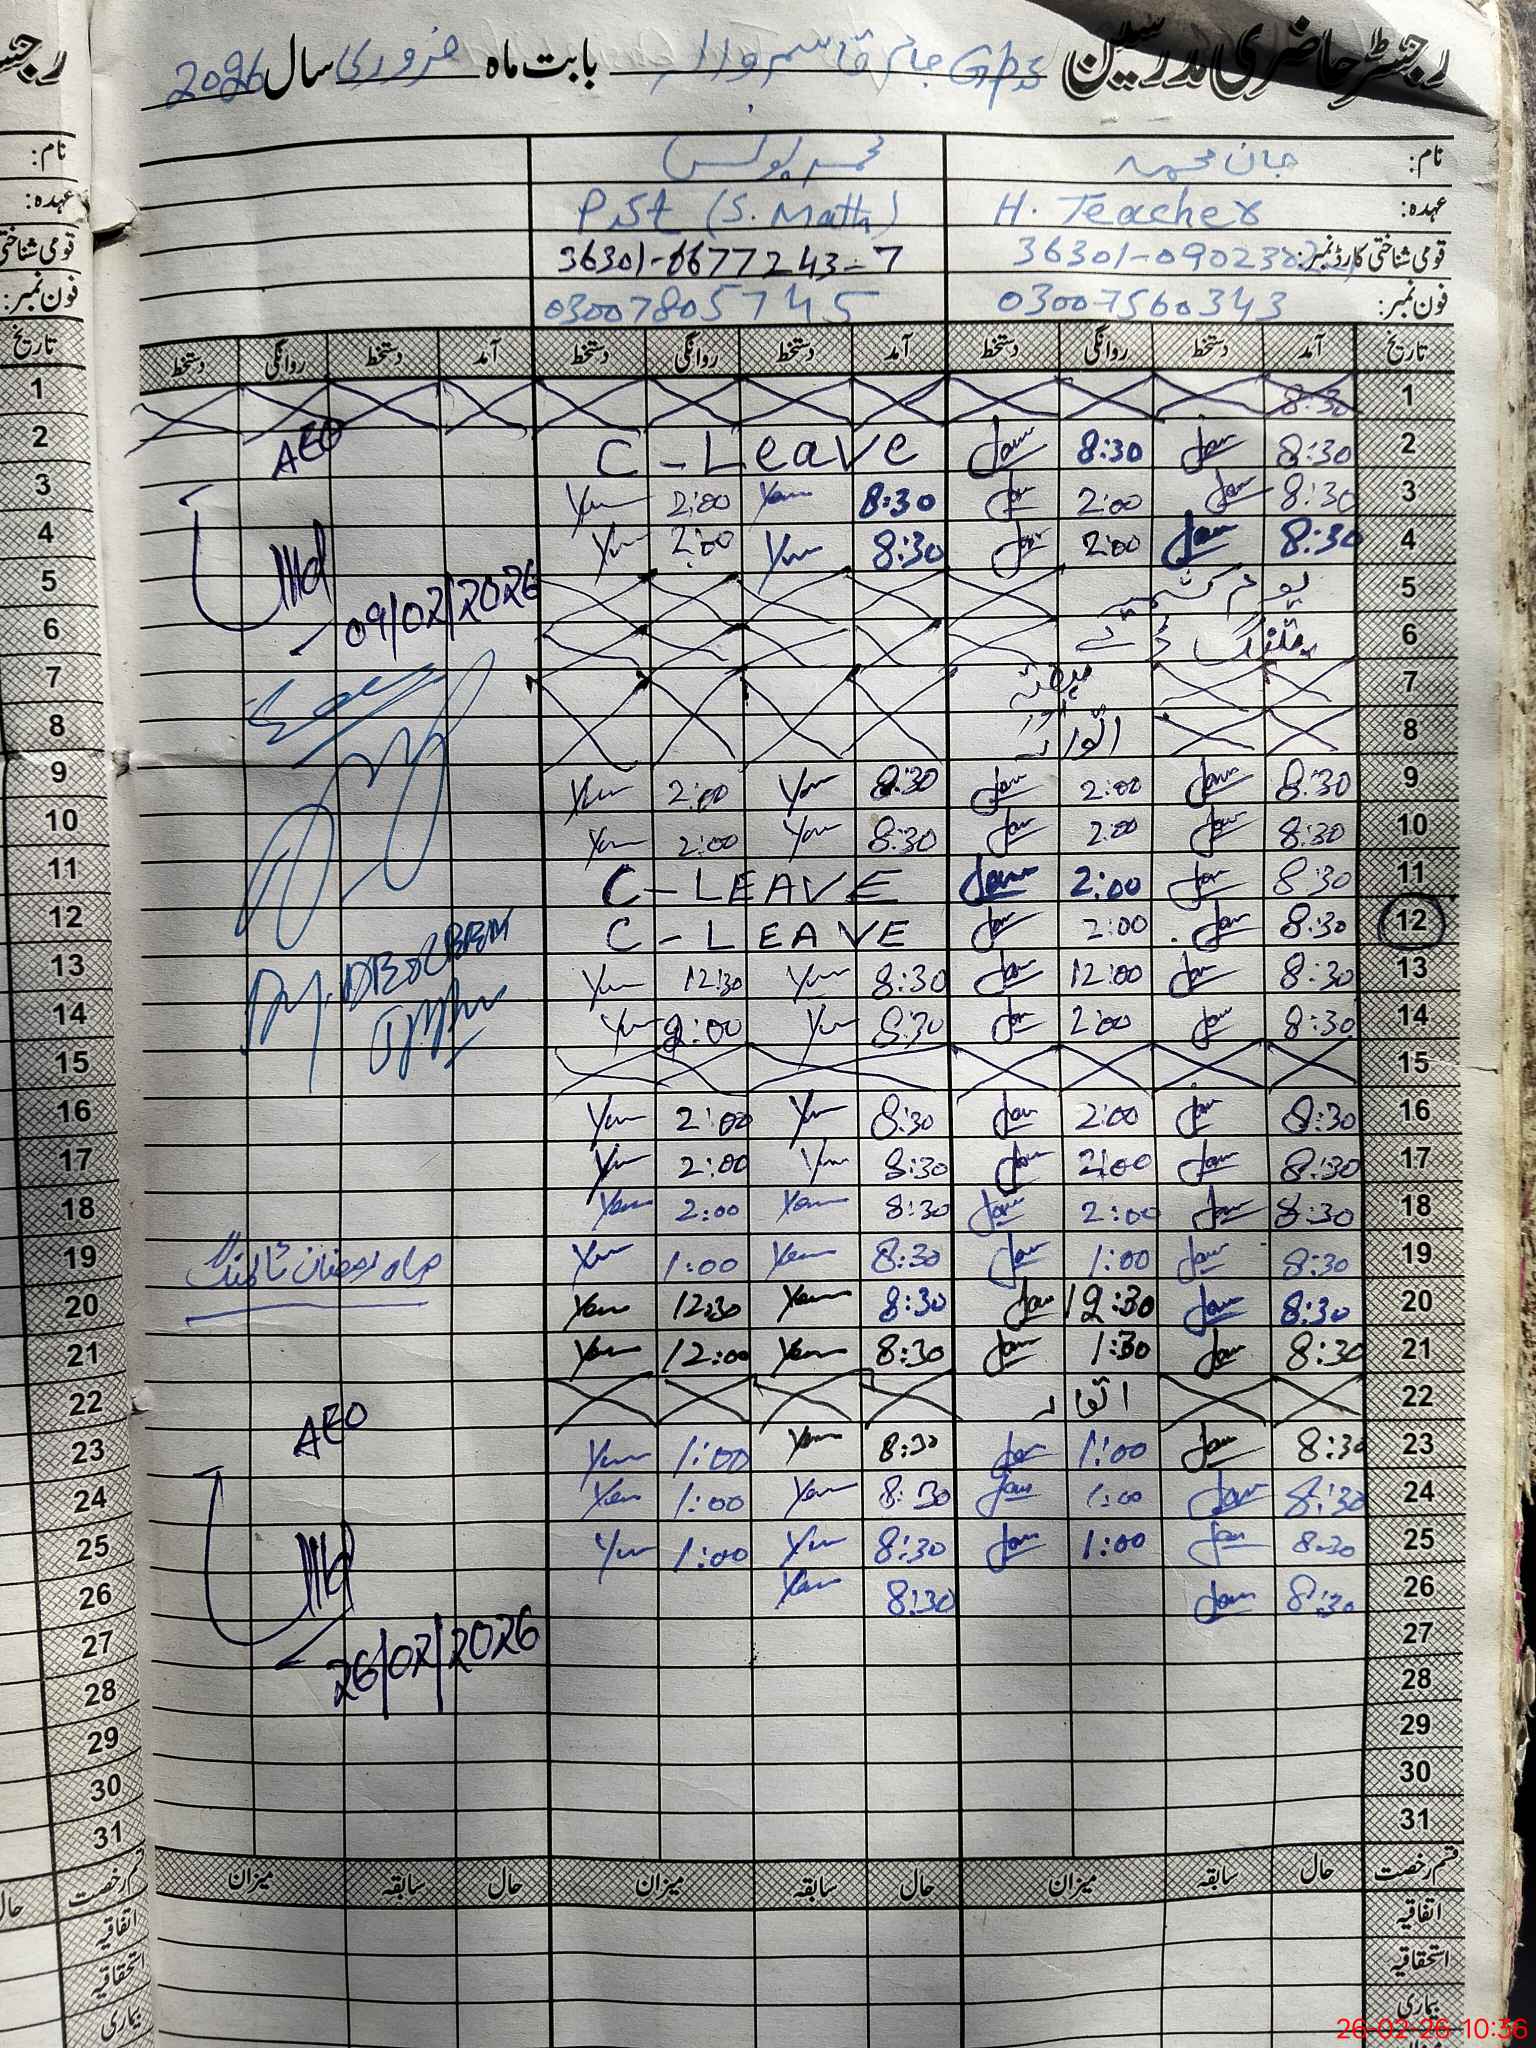 رجسٹر حاضری مدرسین Gps جام قاسم والا بابت ماہ فروری سال 2026
نام: جان محمد محمد یونس
عہدہ: H. Teacher P.S.t (S. Math)
قومی شناختی کارڈ نمبر: 36301-090230 36301-6677243-7
فون نمبر: 03007560343 03007805745
تاریخ آمد دستخط روانگی دستخط آمد دستخط روانگی دستخط آمد دستخط روانگی دستخط
1 8:30
2 8:30 Jan 8:30 Jan C-Leave AEO
3 8:30 Jan 2:00 Jan 8:30 Yun 2:00 Yun
4 8:30 Jan 2:00 Jan 8:30 Yun 2:00 Yun
5 یوم کشمیر 09/02/2026
6
7 ہفتہ
8 اتوار
9 8:30 Jan 2:00 Jan 8:30 Yun 2:00 Yun
10 8:30 Jan 2:00 Jan 8:30 Yun 2:00 Yun
11 8:30 Jan 2:00 Jan C-LEAVE
12 8:30 Jan 2:00 Jan C-LEAVE
13 8:30 Jan 12:00 Jan 8:30 Yun 12:30 Yun
14 8:30 Jan 2:00 Jan 8:30 Yun 2:00 Yun
15
16 8:30 Jan 2:00 Jan 8:30 Yun 2:00 Yun
17 8:30 Jan 2:00 Jan 8:30 Yun 2:00 Yun
18 8:30 Jan 2:00 Jan 8:30 Yun 2:00 Yun
19 8:30 Jan 1:00 Jan 8:30 Yun 1:00 Yun ماہ رمضان ٹائمنگ
20 8:30 Jan 12:30 Jan 8:30 Yun 12:30 Yun
21 8:30 Jan 1:30 Jan 8:30 Yun 12:00 Yun
22 اتوار
23 8:30 Jan 1:00 Jan 8:30 Yun 1:00 Yun AEO
24 8:30 Jan 1:00 Jan 8:30 Yun 1:00 Yun
25 8:30 Jan 1:00 Jan 8:30 Yun 1:00 Yun
26 8:30 Jan 8:30 Yun
27 26/02/2026
28
29
30
31
قسم رخصت حال سابقہ میزان حال سابقہ میزان حال سابقہ میزان
اتفاقیہ
استحقاقیہ
بیماری
26-02-26 10:36
رجس
نام:
عہدہ:
قومی شناختی
فون نمبر:
تاریخ
1
2
3
4
5
6
7
8
9
10
11
12
13
14
15
16
17
18
19
20
21
22
23
24
25
26
27
28
29
30
31
قسم رخصت حال
اتفاقیہ
استحقاقیہ
بیماری